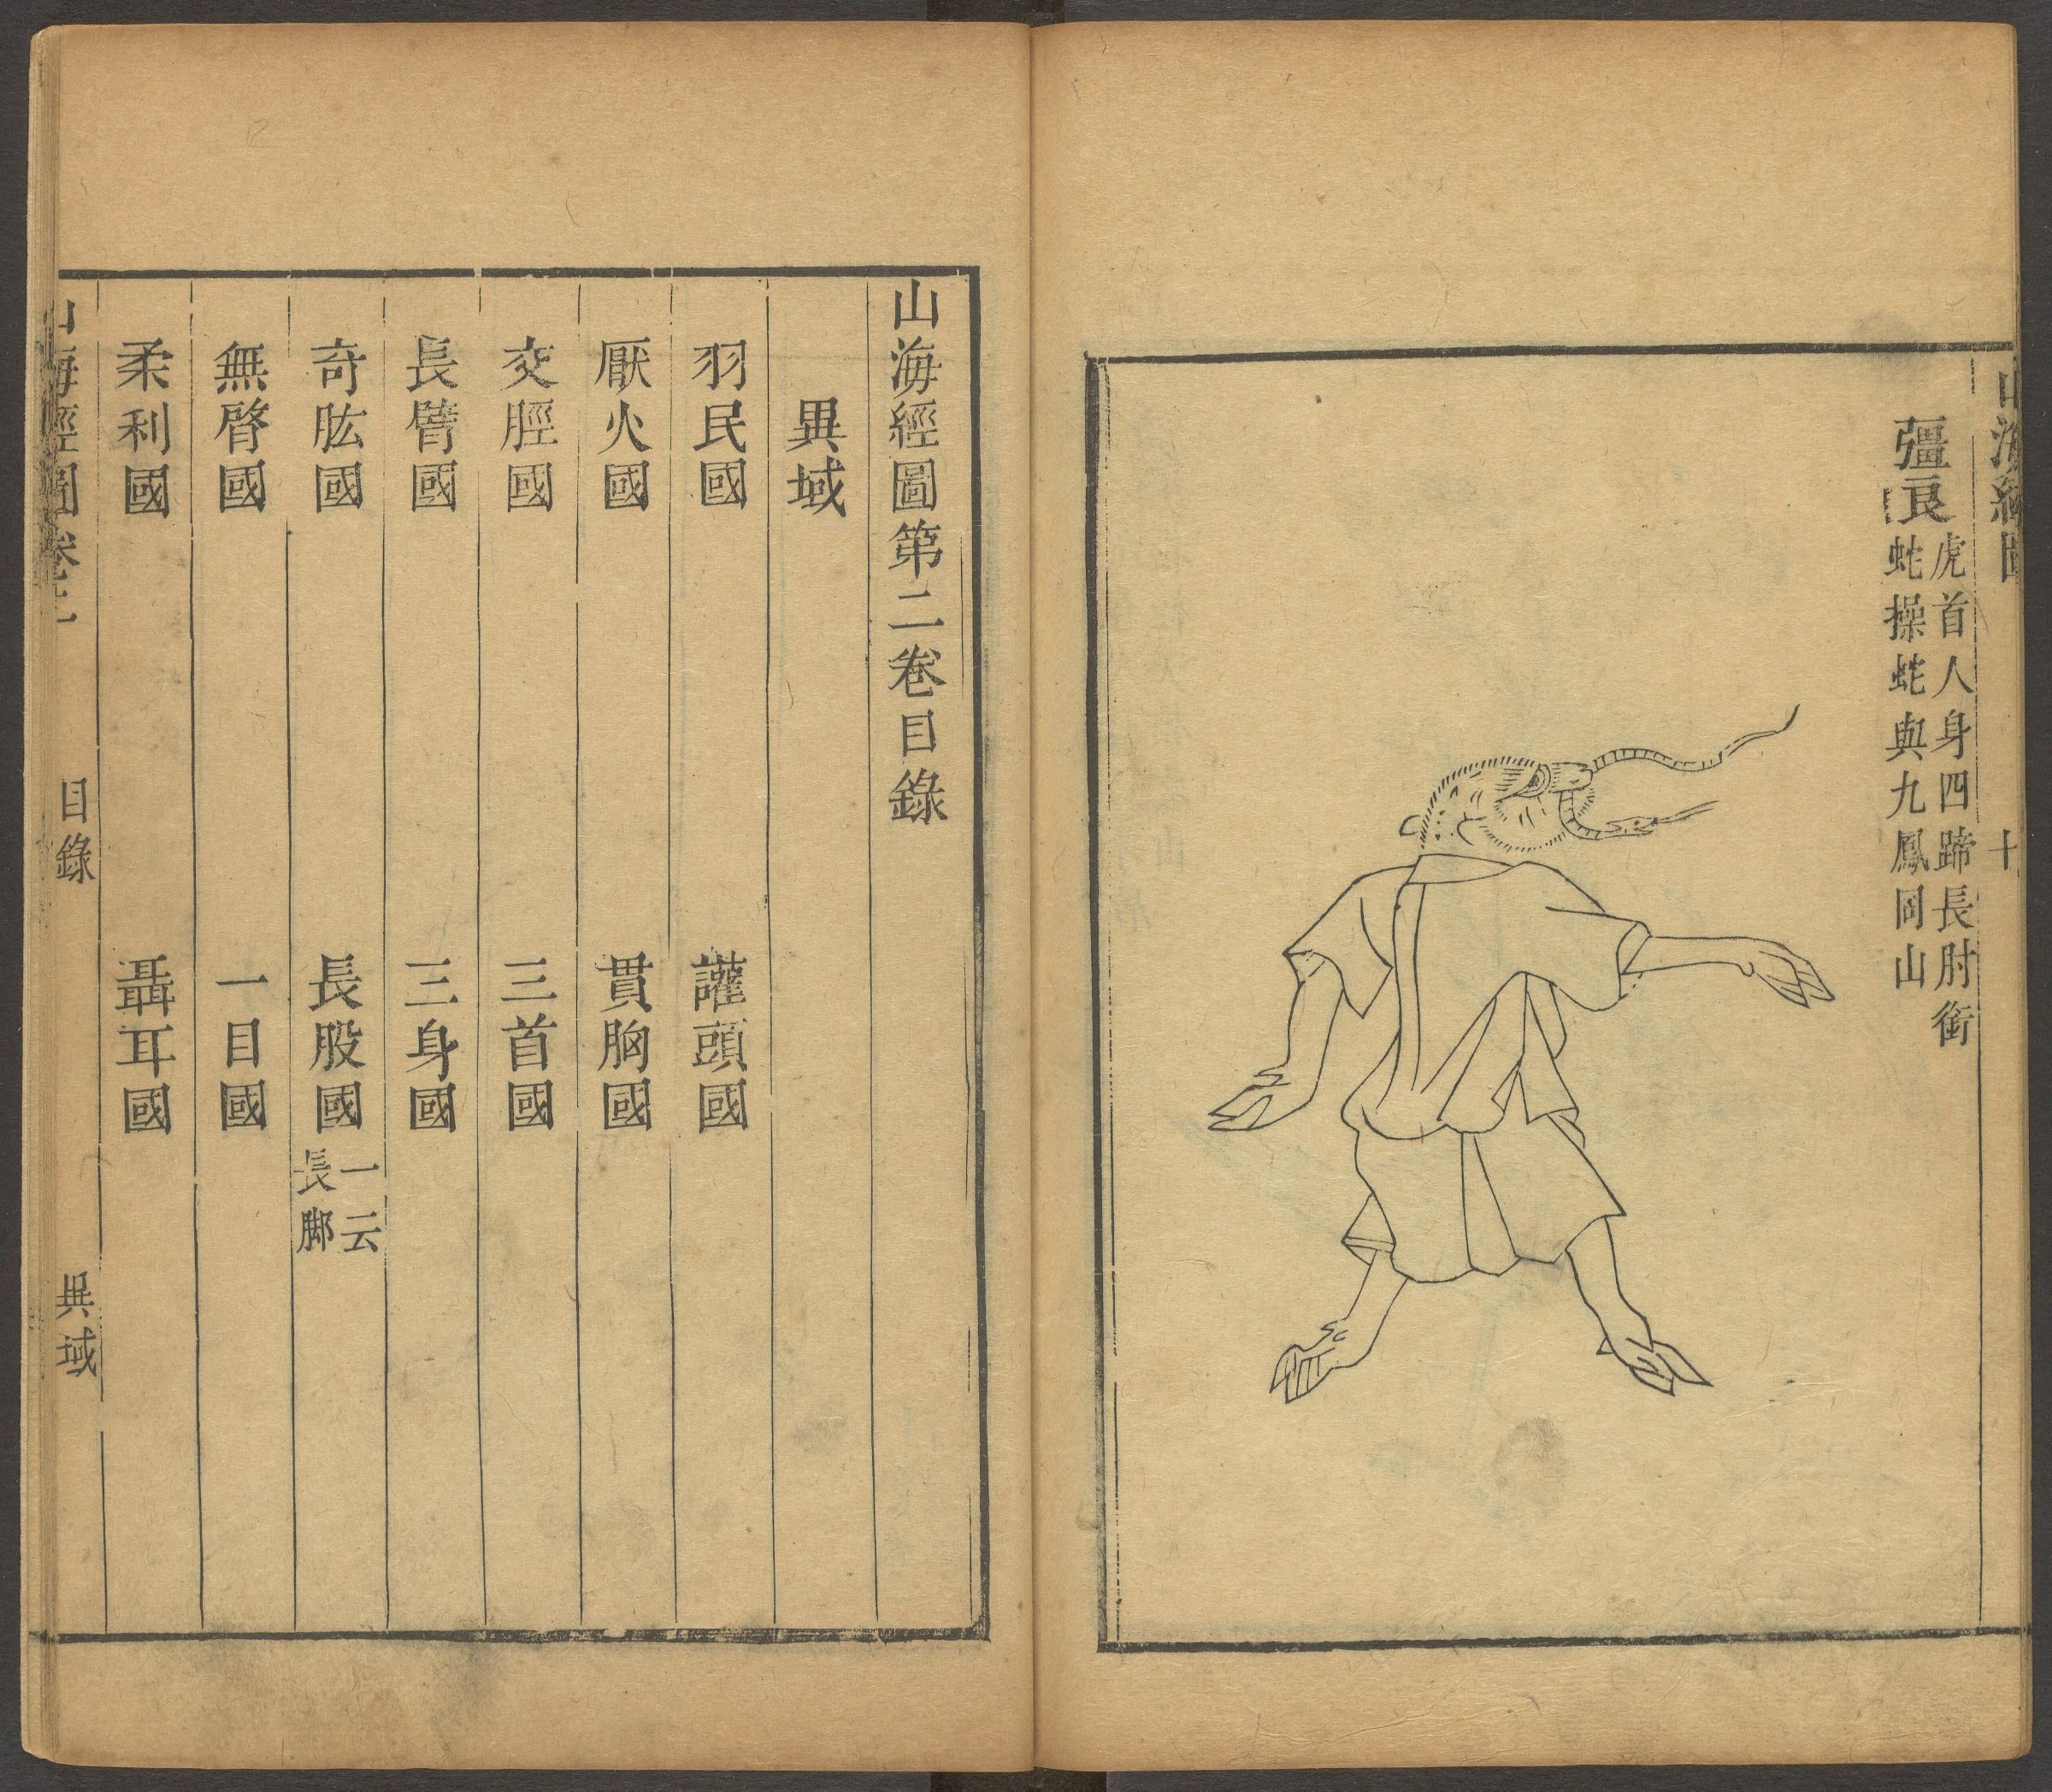 山海經圖
十
彊良
虎首人身四蹄長肘銜
蛇操蛇與九鳳同山
山海經圖第二卷目錄
異域
羽民國 讙頭國
厭火國 貫胸國
交脛國 三首國
長臂國 三身國
奇肱國 長股國
一云
長脚
無䏿國 一目國
柔利國 聶耳國
山海經圖卷二 目錄 異域